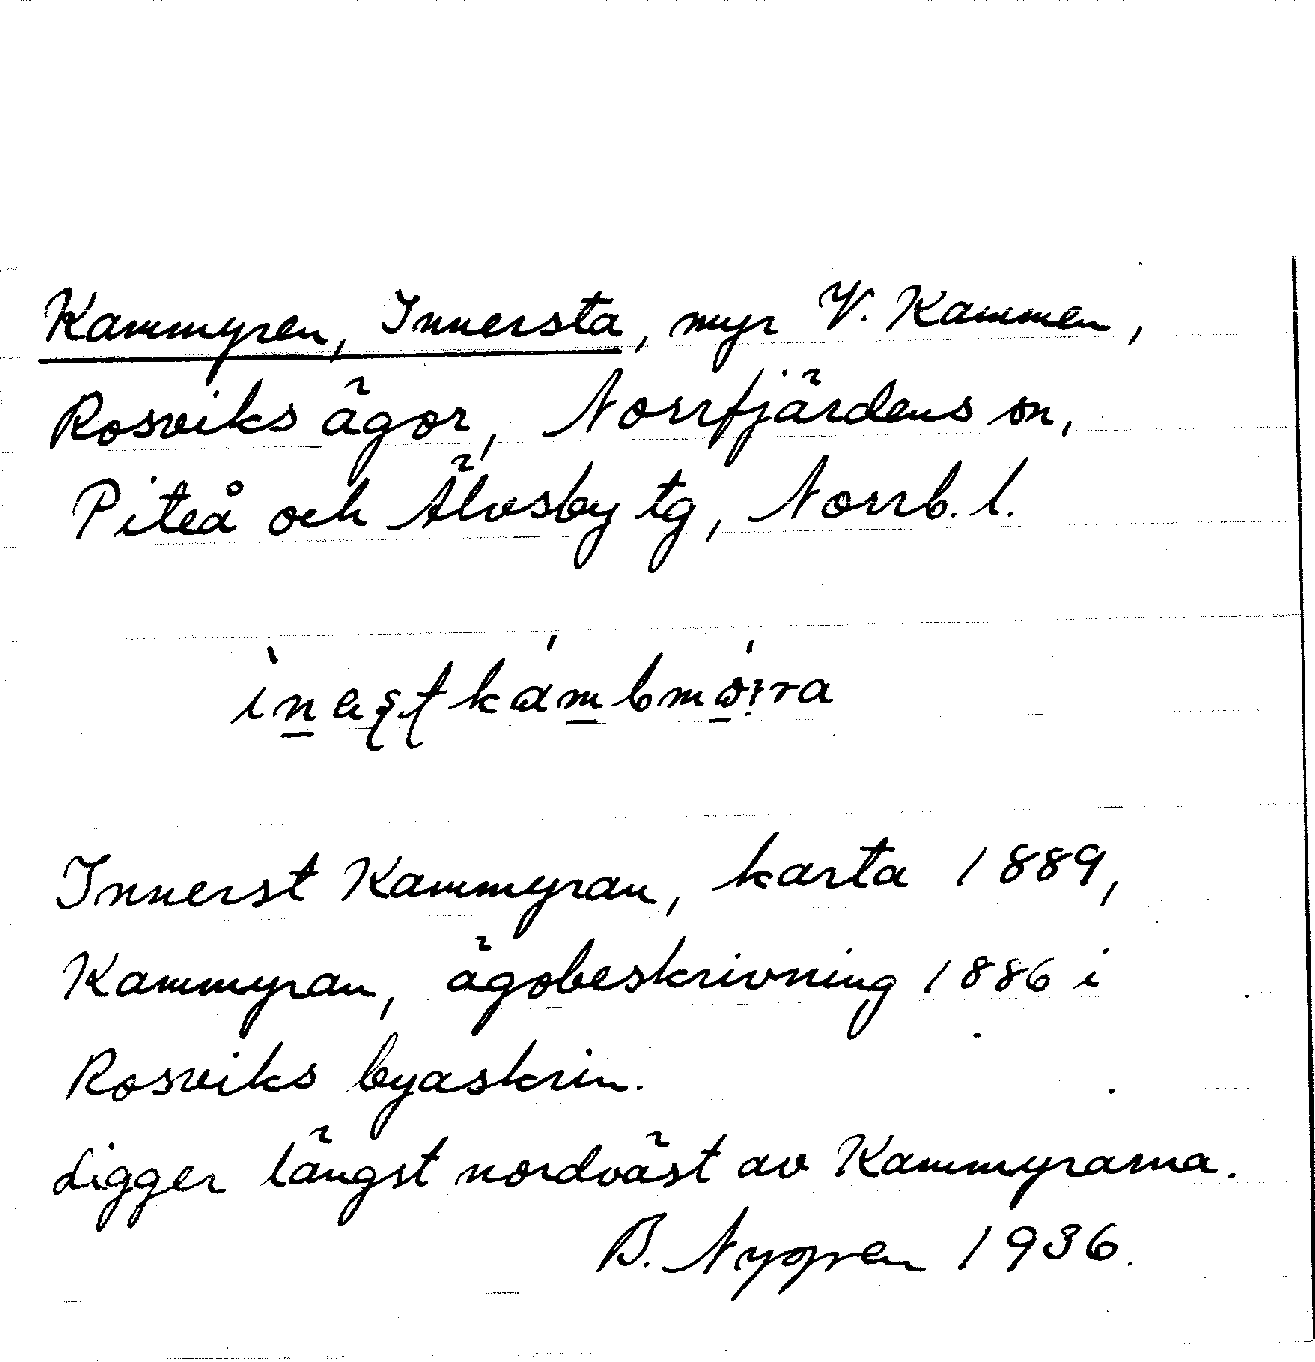 Kammyren, Innersta, myr V. Kammen,
Rosviks ägor, Norrfjärdens sn,
Piteå och Älvsby tg, Norrb. l.
Innerst Kammyran, karta 1889,
Kammyran, ägobeskrivning 1886 i
Rosviks byaskrin.
Ligger längst nordväst av Kammyrarna.
B. Nygren 1936.